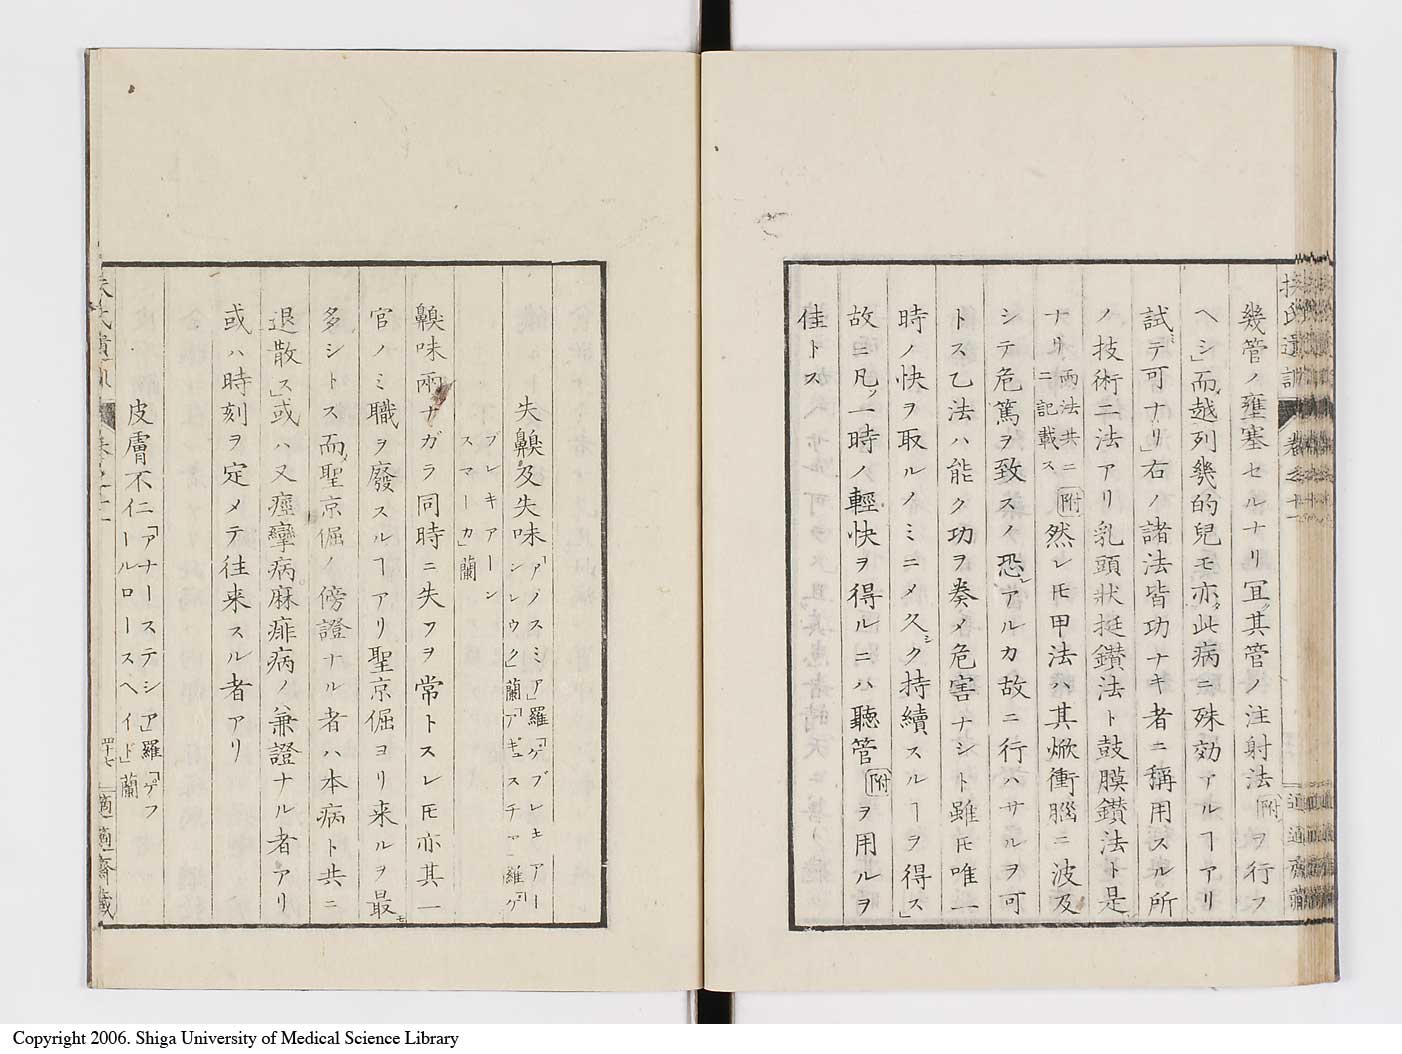 扶氏遺訓 卷之十一
適適齋藏
幾管ノ壅塞セルナリ冝ク其管ノ注射法附ヲ行フ
ヘシ」而越列幾的兒モ亦タ此病ニ殊効アルヿアリ
試テ可ナリ」右ノ諸法皆功ナキ者ニ稱用スル所
ノ技術二法アリ乳頭狀挺鑽法ト鼓膜鑽法ト是
ナリ兩法共ニ附ニ記載ス然レ𪜈甲法ハ其焮衝腦ニ波及
シテ危篤ヲ致スノ恐レアルカ故ニ行ハサルヲ可
トス乙法ハ能ク功ヲ奏メ危害ナシト雖𪜈唯一
時ノ快ヲ取ルノミニメ久シク持續スルヿヲ得ス」
故ニ凡ソ一時ノ輕快ヲ得ルニハ聽管附ヲ用ルヲ
佳トス
失齅及失味「アノスミア」羅「ゲブレキアーンレウク」蘭「アギュスチア」羅「ゲブレキアーンスマーカ」蘭
齅味兩ナガラ同時ニ失フヲ常トスレ𪜈亦其一
官ノミ職ヲ廢スルヿアリ聖京倔ヨリ来ルヲ最モ
多シトス而聖京倔ノ傍證ナル者ハ本病ト共ニ
退散ス」或ハ又痙攣病麻痱病ノ兼證ナル者アリ
或ハ時刻ヲ定メテ往来スル者アリ
皮膚不仁「アナーステシア」羅「ゲフールロースヘイド」蘭
扶氏遺訓 卷之十一
四十七
適適齋藏
Copyright 2006. Shiga University of Medical Science Library